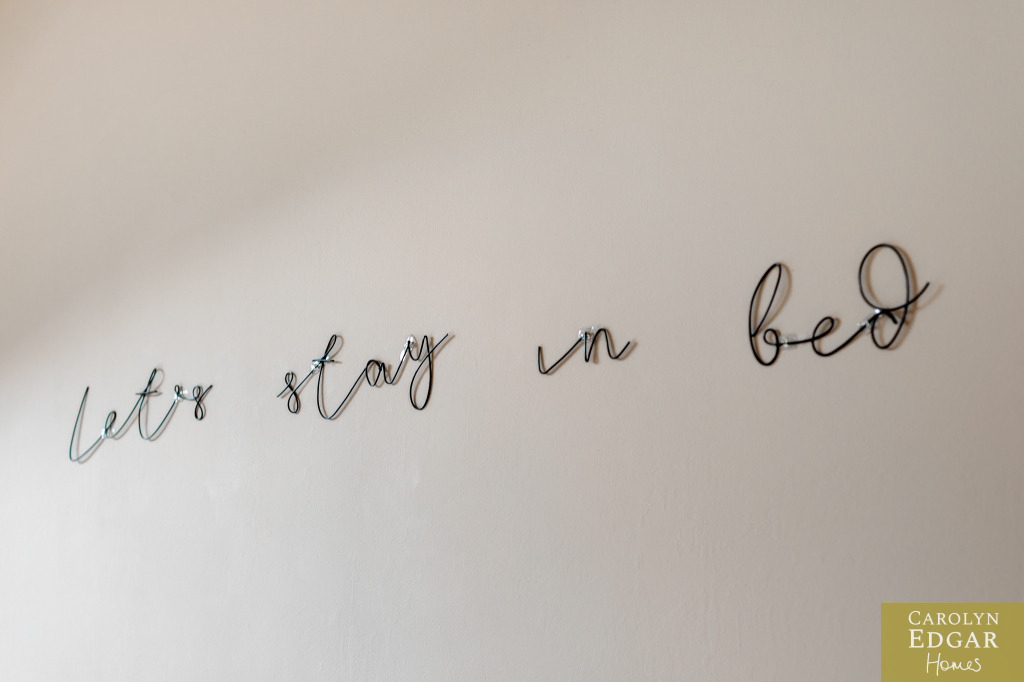 let's stay in bed
CAROLYN
EDGAR
Homes